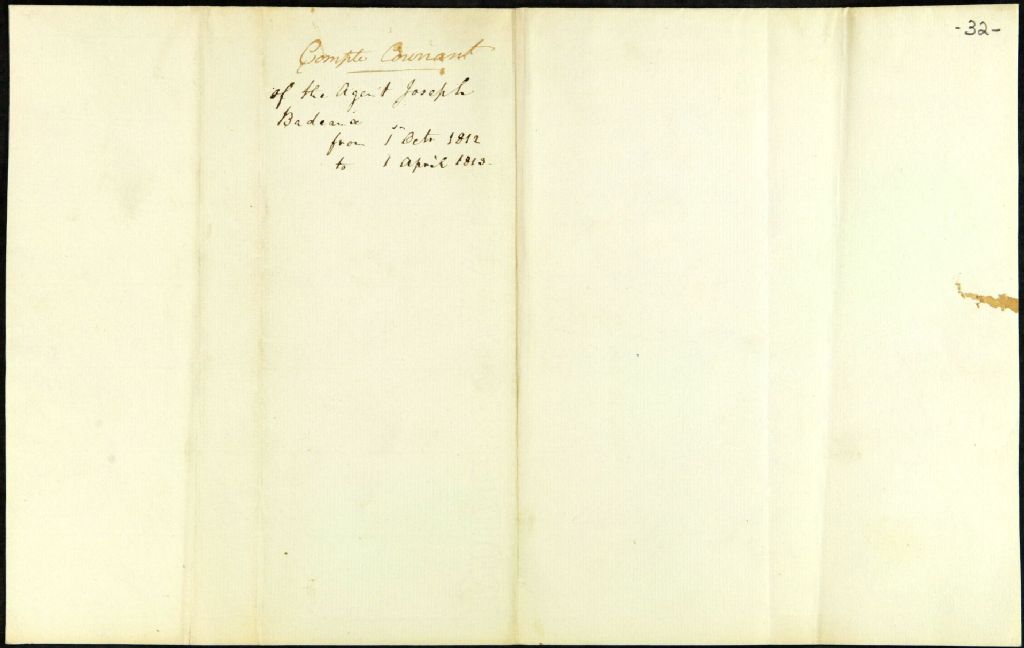 -32-
Compte Courrant
of the Agent Joseph
Badeaux
from 1er Octr 1812
to 1 April 1813.